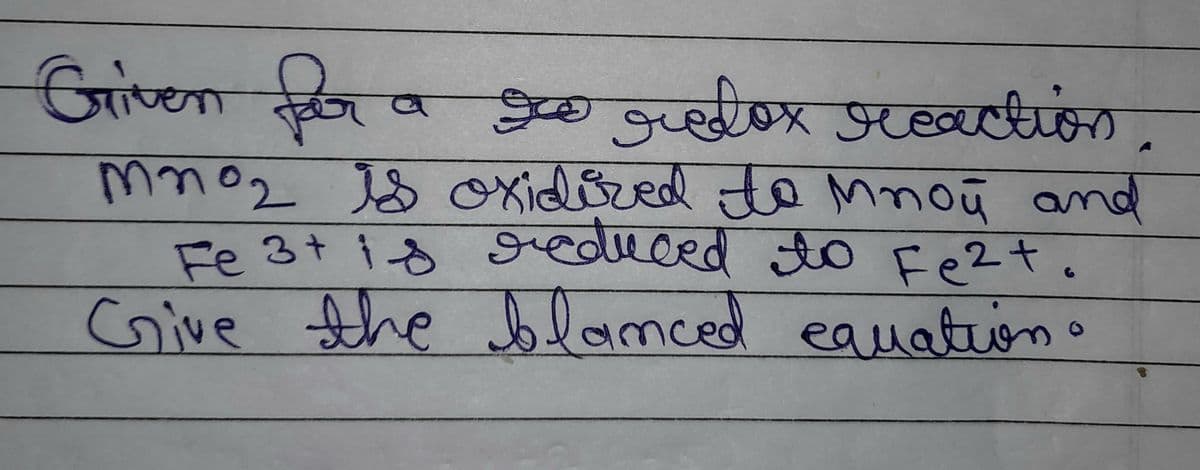 Given for a redox reaction.
MnO2 is oxidized to MnO4̄ and
Fe 3+ is reduced to Fe2+.
Give the blamced equation.